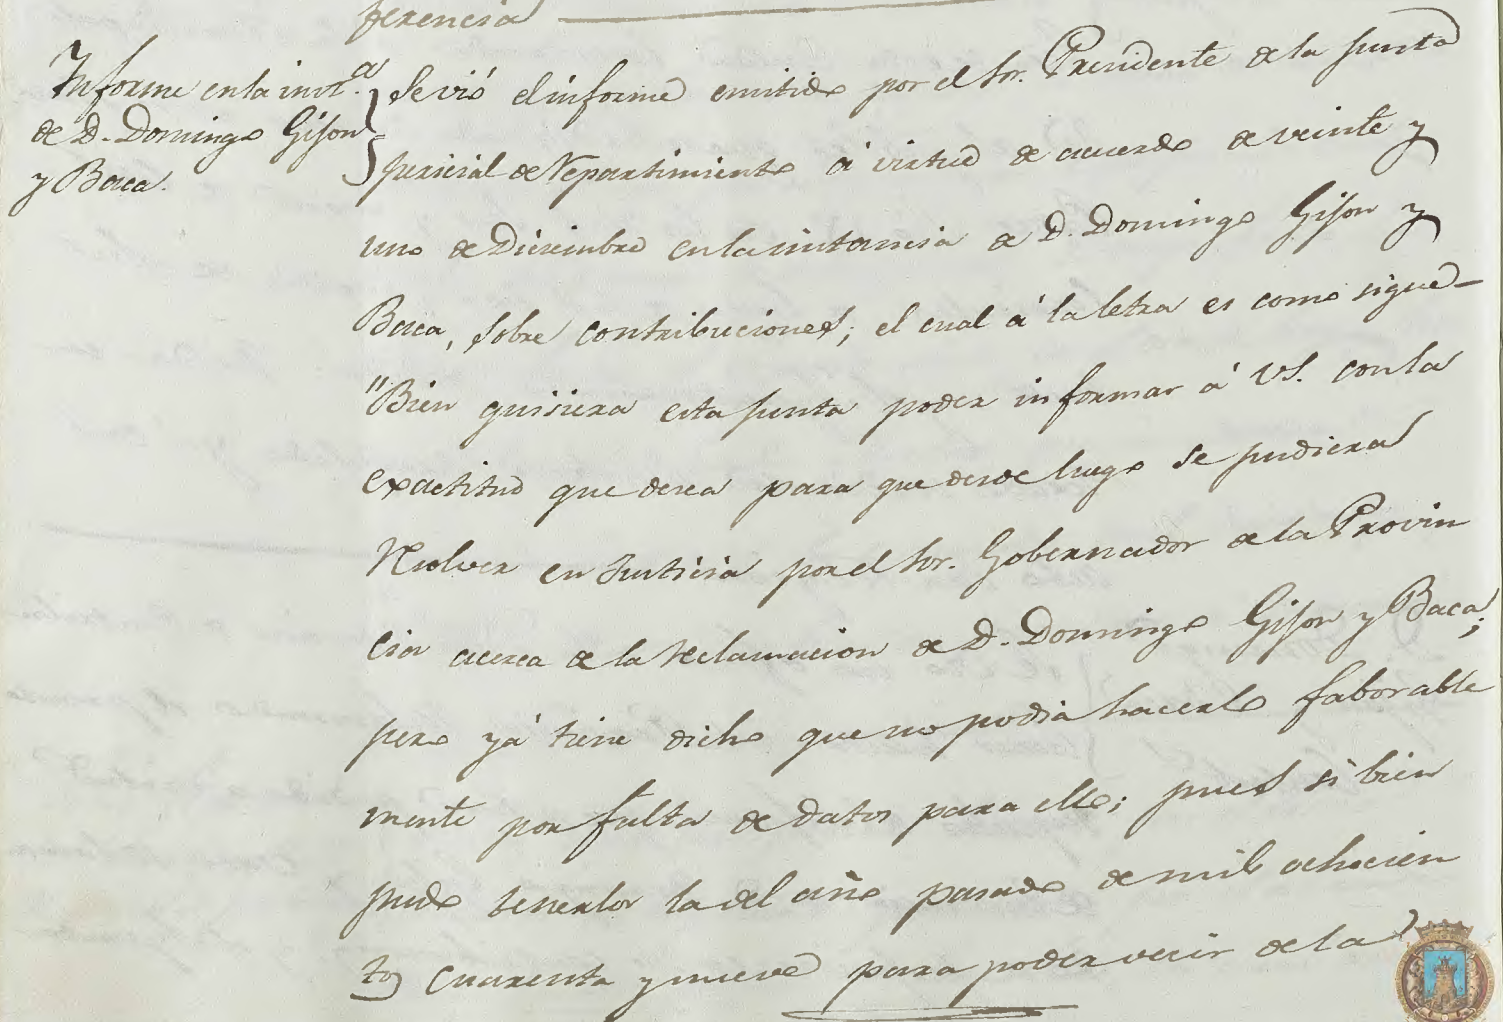 ferencia
Informe en la inst.ª
de D. Domingo Gijon
y Baca.
Se vió el informe emitido por el Sor. Presidente de la Junta
pericial de Repartimiento á virtud de acuerdo de veinte y
uno de Diciembre en la instancia de D. Domingo Gijon y
Baca, sobre contribuciones; el cual á la letra es como sigue—
"Bien quisiera esta Junta poder informar á VS. con la
exactitud que desea para que desde luego se pudiera
resolver en Justicia por el Sor. Gobernador de la Provin
cia acerca de la reclamacion de D. Domingo Gijon y Baca;
pero yá tiene dicho que no podia hacerlo faborable
mente por falta de datos para ello; pues si bien
pudo tenerlos la del año pasado de mil ochocien
tos cuarenta y nueve para poder decir de la